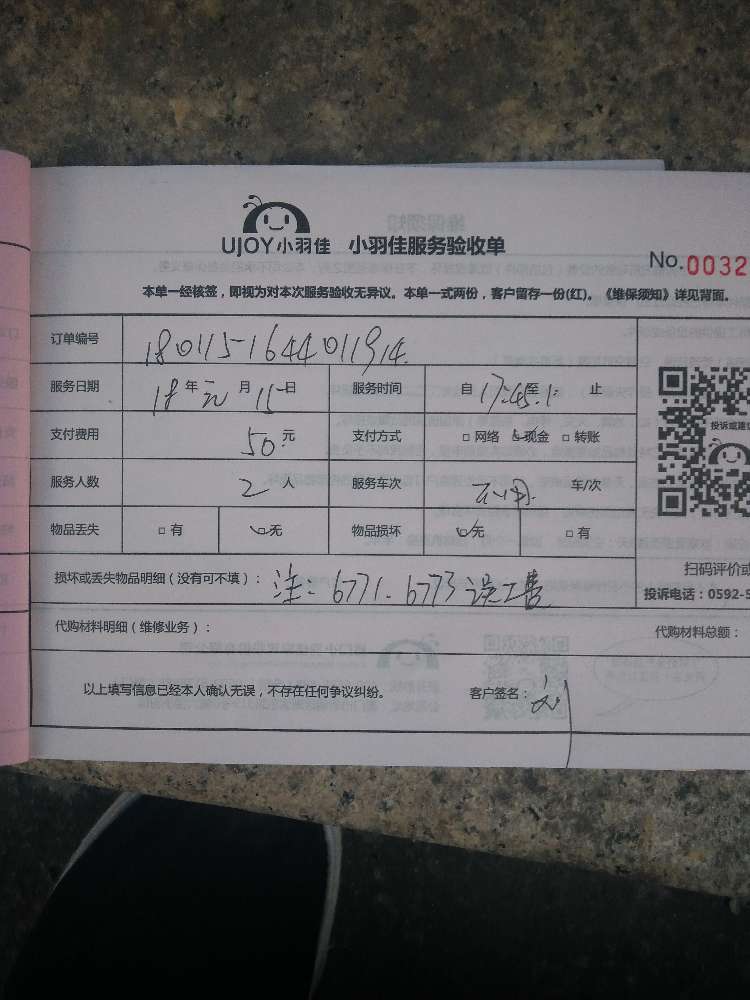 UJOY小羽佳 小羽佳服务验收单
No.0032
本单一经核签，即视为对本次服务验收无异议。本单一式两份，客户留存一份(红)。《维保须知》详见背面。
订单编号 180115-1644011914
服务日期 18年元月15日 服务时间 自17:45至 止
支付费用 50元 支付方式 □网络 □现金 □转账
服务人数 2人 服务车次 车/次
物品丢失 □有 □无 物品损坏 □无 □有
投诉或建议
扫码评价或
损坏或丢失物品明细（没有可不填）： 注：6771.6773误工费
投诉电话：0592-5
代购材料明细（维修业务）： 代购材料总额：
以上填写信息已经本人确认无误，不存在任何争议纠纷。 客户签名：刘